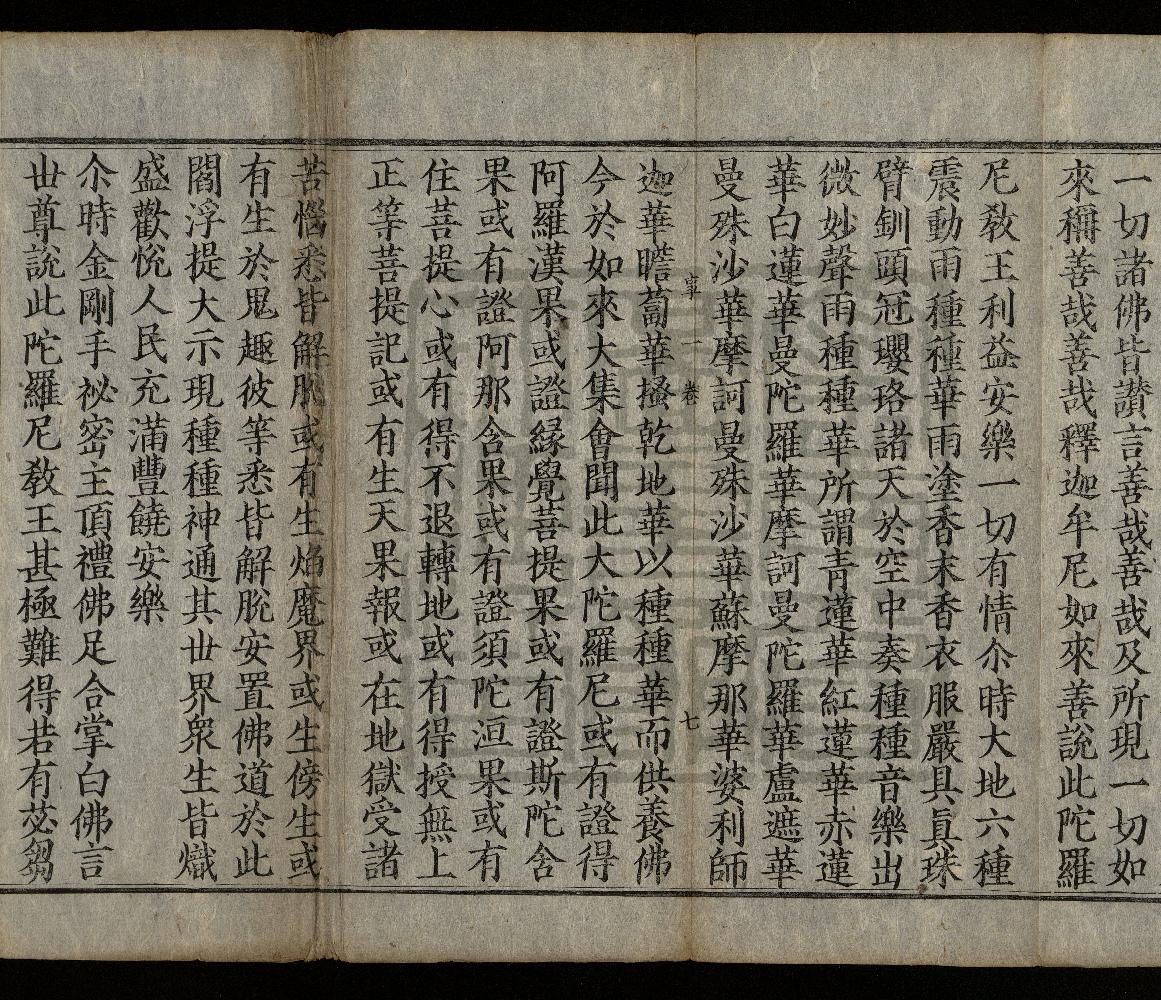 一切諸佛皆讚言善哉善哉及所現一切如
來稱善哉善哉釋迦牟尼如來善說此陀羅
尼教王利益安樂一切有情尒時大地六種
震動雨種種華雨塗香末香衣服嚴具真珠
臂釧頭冠瓔珞諸天於空中奏種種音樂出
微妙聲雨種種華所謂青蓮華紅蓮華赤蓮
華白蓮華曼陀羅華摩訶曼陀羅華盧遮華
曼殊沙華摩訶曼殊沙華蘇摩那華婆利師
一 卷 七
迦華瞻蔔華搔乾地華以種種華而供養佛
今於如來大集會聞此大陀羅尼或有證得
阿羅漢果或證緣覺菩提果或有證斯陀含
果或有證阿那含果或有證須陀洹果或有
住菩提心或有得不退轉地或有得授無上
正等菩提記或有生天果報或在地獄受諸
苦惱悉皆解脫或有生焰魔界或生傍生或
有生於鬼趣彼等悉皆解脫安置佛道於此
閻浮提大示現種種神通其丗界眾生皆熾
盛歡悅人民充滿豐饒安樂
尒時金剛手祕密主頂禮佛足合掌白佛言
丗尊說此陀羅尼教王甚極難得若有苾芻